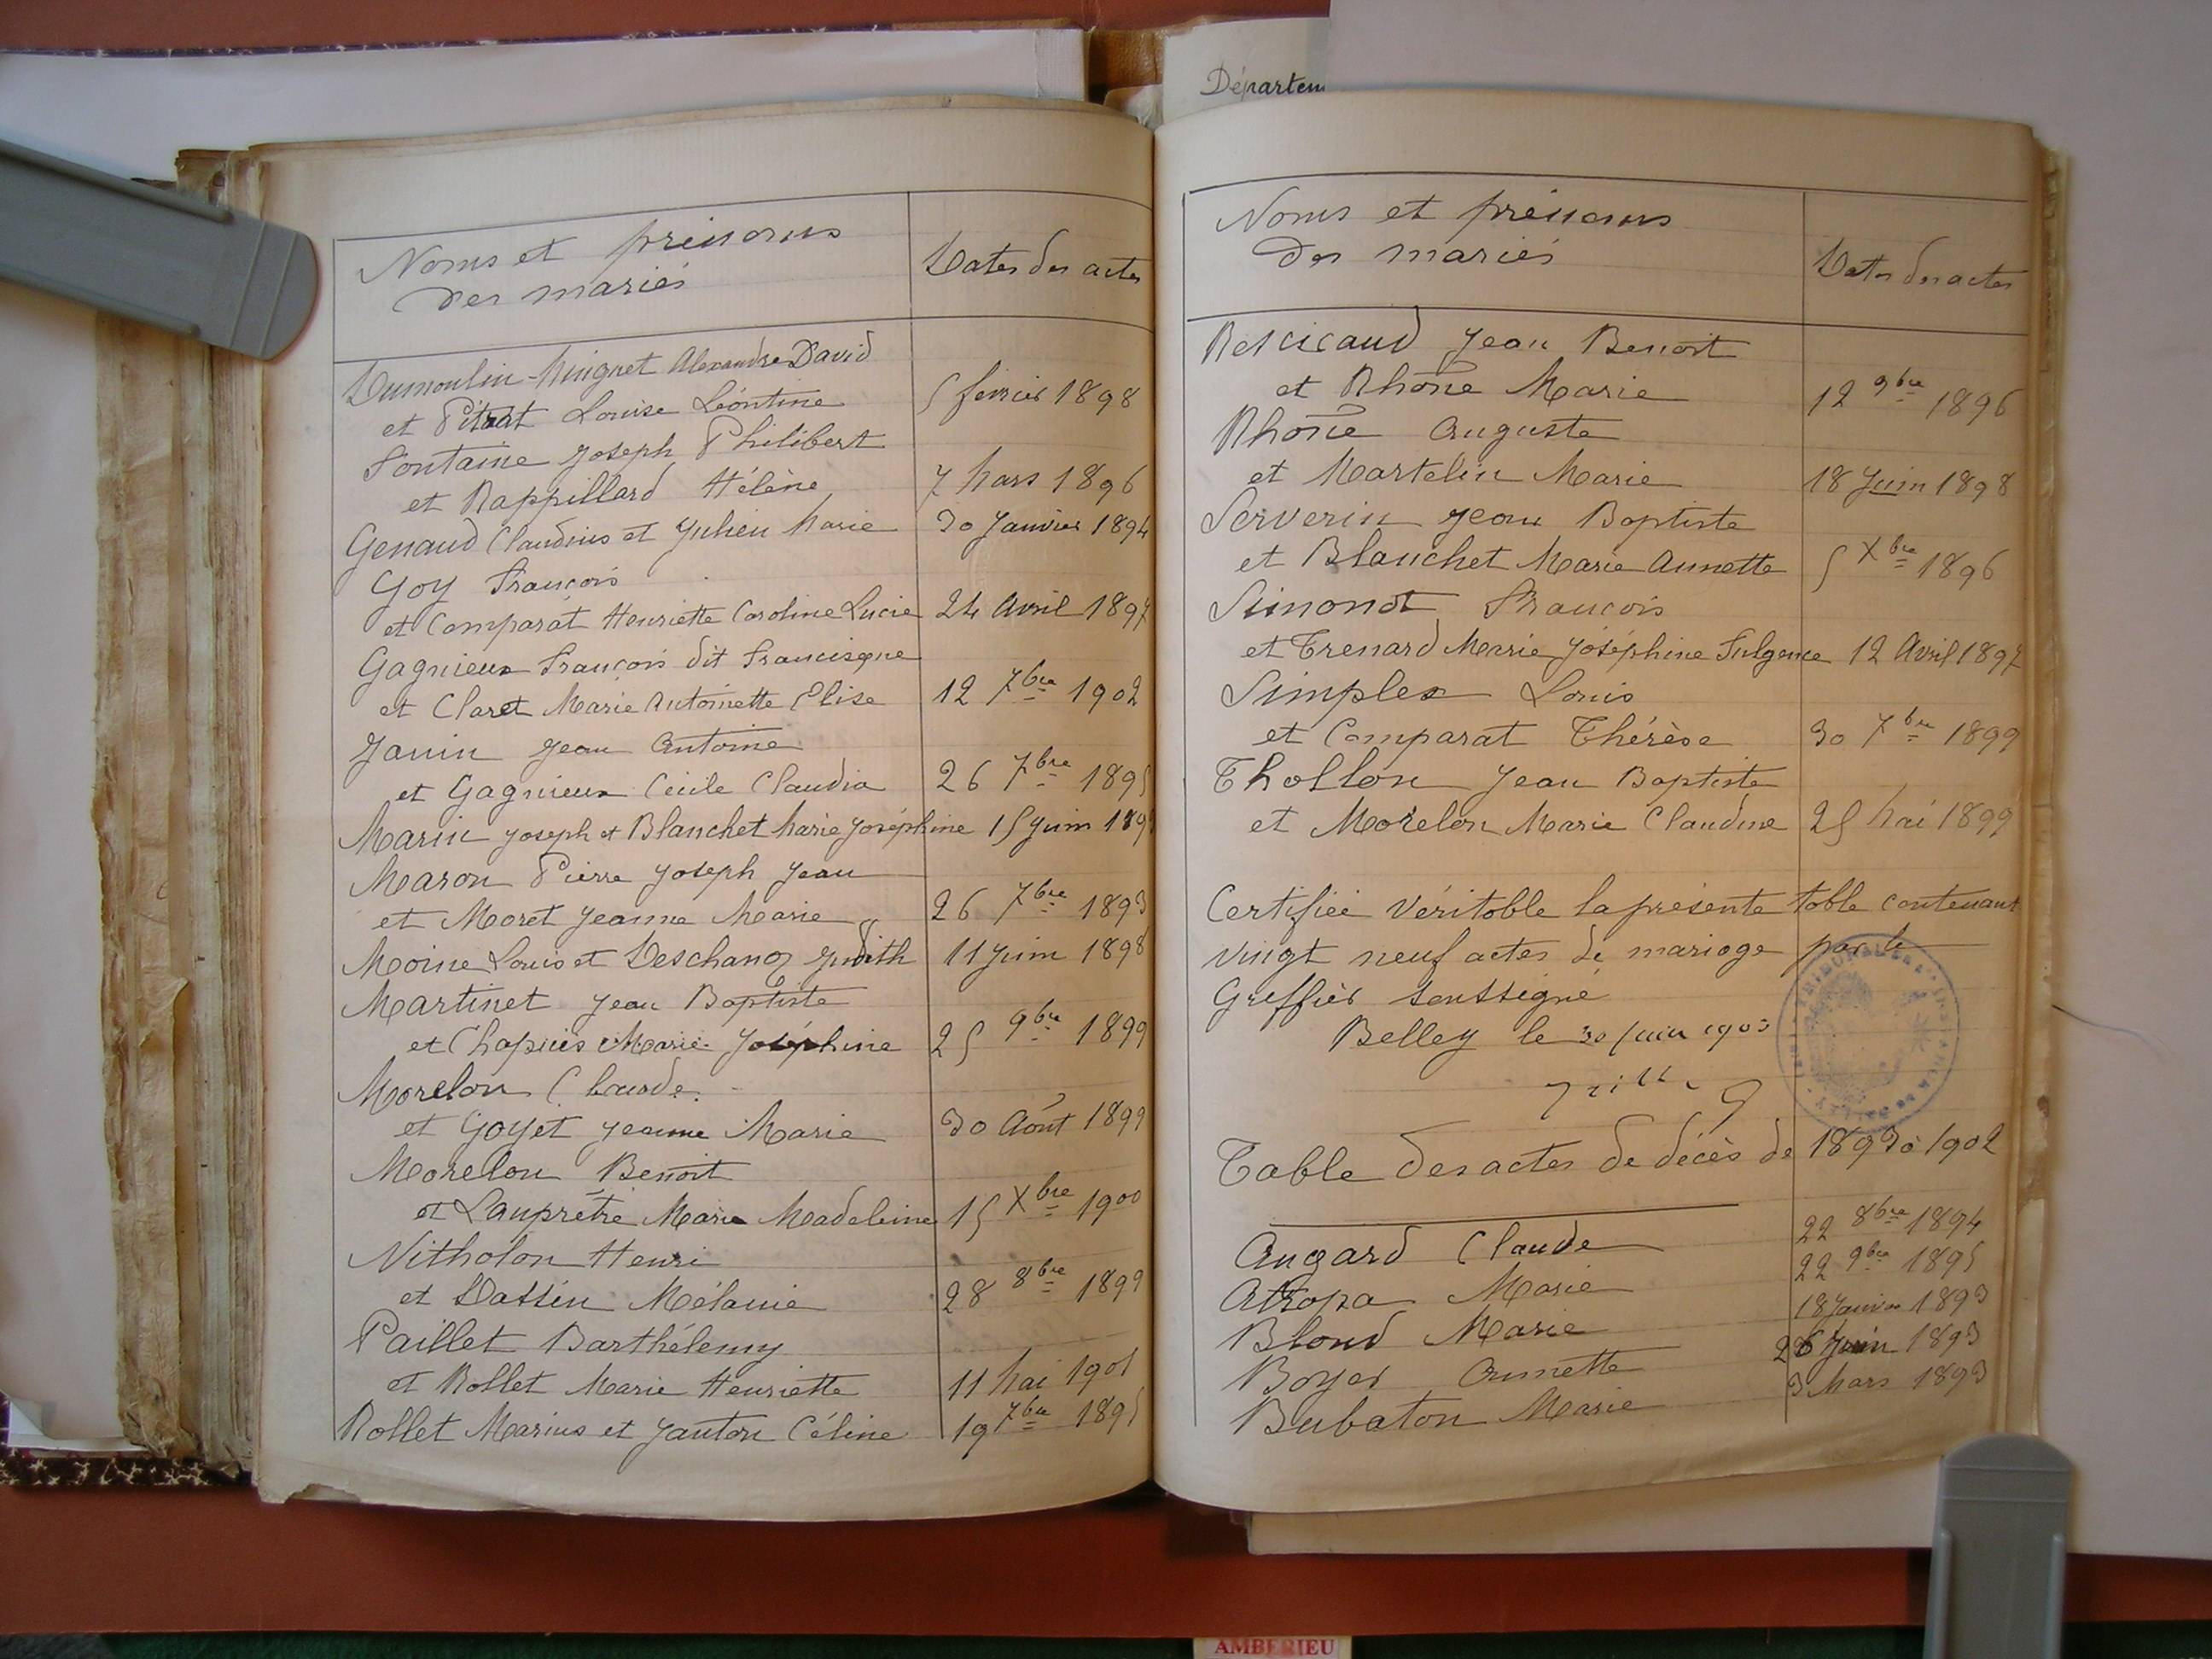 Départem
Noms et prénoms
des mariés
Dates des actes
Dumoulin-Minguet Alexandre David
et Pitrat Louise Léontine
5 février 1898
Fontaine Joseph Philibert
et Rappillard Hélène
7 Mars 1896
Genaud Claudius et Julien Marie
30 Janvier 1894
Goy François
et Comparat Henriette Caroline Lucie
24 Avril 1897
Gagnieux François dit Francisque
et Claret Marie Antoinette Elise
12 7bre 1902
Janin Jean Antoine
et Gagnieux Cécile Claudia
26 7bre 1895
Marin Joseph et Blanchet Marie Joséphine
15 Juin
Maron Pierre Joseph Jean
et Moret Jeanne Marie
26 7bre 1893
Moine Louis et Deschanoz Judith
11 Juin 1898
Martinet Jean Baptiste
et Chapuis Marie Joséphine
25 9bre 1899
Morelon Claude
et Goyet Jeanne Marie
30 Août 1899
Morelon Benoit
et Lauprêtre Marie Madeleine
15 Xbre 1900
Nitholon Henri
et Dassin Mélanie
28 8bre 1899
Paillet Barthélemy
et Rollet Marie Henriette
11 Mai 1901
Rollet Marius et Janton Céline
19 7bre 1895
Noms et prénoms
des mariés
Dates des actes
Jean Benoit
et Rhône Marie
12 9bre 1896
Rhône Auguste
et Martelin Marie
18 Juin 1898
Serverin Jean Baptiste
et Blanchet Marie Annette
5 Xbre 1896
Simonot François
et Trenard Marie Joséphine Fulgence
12 Avril 1897
Simplex Louis
et Comparat Thérèse
30 7bre 1899
Thollon Jean Baptiste
et Morelon Marie Claudine
25 Mai 1899
Certifiée véritable la présente table contenant
vingt neuf actes de mariage par le
Greffier soussigné
Belley le 30 Juin 1903
Table des actes de décès de 1893 à 1902
Augard Claude
22 8bre 1894
Atropa Marie
22 9bre 1895
Blond Marie
18 Janvier 1893
Boyer Annette
26 Juin 1893
Bubaton Marie
3 Mars 1893
AMBERIEU